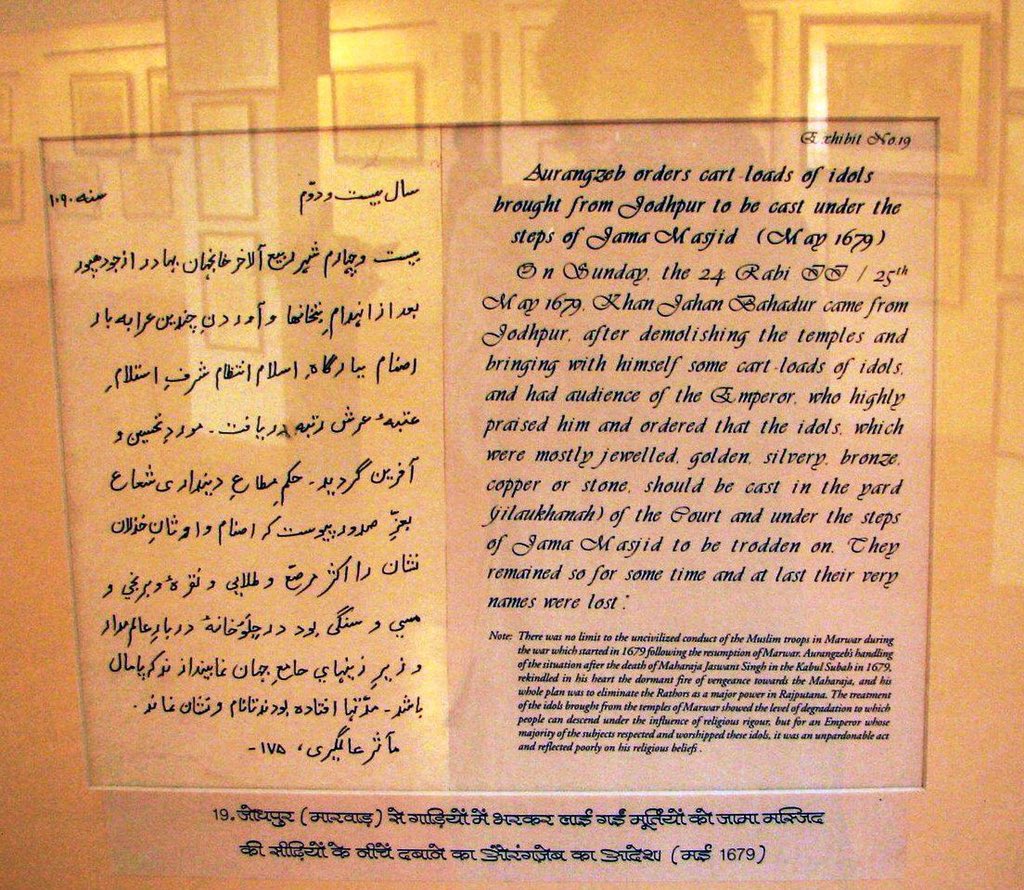 سال بیست و دوّم
سنه ۱۰۹۰
بیست و چهارم شهر ربیع آلاخر خانجهان بهادر از جودهپور
بعد از انهدامِ بتخانها و آوردنِ چندین عرابه بار
اصنام ببارگاهِ اسلام انتظام شرفِ استلامِ
عتبۀ عرش رتبه دریافت ـ موردِ تحسین و
آفرین گردید ـ حکمِ مطاعِ دینداری شعاع
بعزّ صدور پیوست که اصنام و اوثانِ خذلان
نشان را اکثر مرصّع و طلایی و نقرۀ و برنجی و
مسی و سنگی بود در جلوخانۀ دربارِ عالم مدار
و زیرِ زینهایِ جامعِ جهان نما بیندازند که پامال
باشد ـ مدّتها افتاده بودند تا نام و نشان نماند ۰
مآثر عالمگیری، ۱۷۵ ـ
Exhibit No.19
Aurangzeb orders cart-loads of idols
brought from Jodhpur to be cast under the
steps of Jama Masjid (May 1679)
On Sunday, the 24 Rabi II / 25th
May 1679, Khan Jahan Bahadur came from
Jodhpur, after demolishing the temples and
bringing with himself some cart-loads of idols,
and had audience of the Emperor, who highly
praised him and ordered that the idols, which
were mostly jewelled, golden, silvery, bronze,
copper or stone, should be cast in the yard
(jilaukhanah) of the Court and under the steps
of Jama Masjid to be trodden on. They
remained so for some time and at last their very
names were lost:
Note: There was no limit to the uncivilized conduct of the Muslim troops in Marwar during
the war which started in 1679 following the resumption of Marwar. Aurangzeb's handling
of the situation after the death of Maharaja Jaswant Singh in the Kabul Subah in 1679,
rekindled in his heart the dormant fire of vengeance towards the Maharaja, and his
whole plan was to eliminate the Rathors as a major power in Rajputana. The treatment
of the idols brought from the temples of Marwar showed the level of degradation to which
people can descend under the influence of religious rigour, but for an Emperor whose
majority of the subjects respected and worshipped these idols, it was an unpardonable act
and reflected poorly on his religious beliefs.
19. जोधपुर (मारवाड़) से गाड़ियों में भरकर लाई गई मूर्तियों को जामा मस्जिद
की सीढ़ियों के नीचें दबाने का औरंगज़ेब का आदेश (मई 1679)